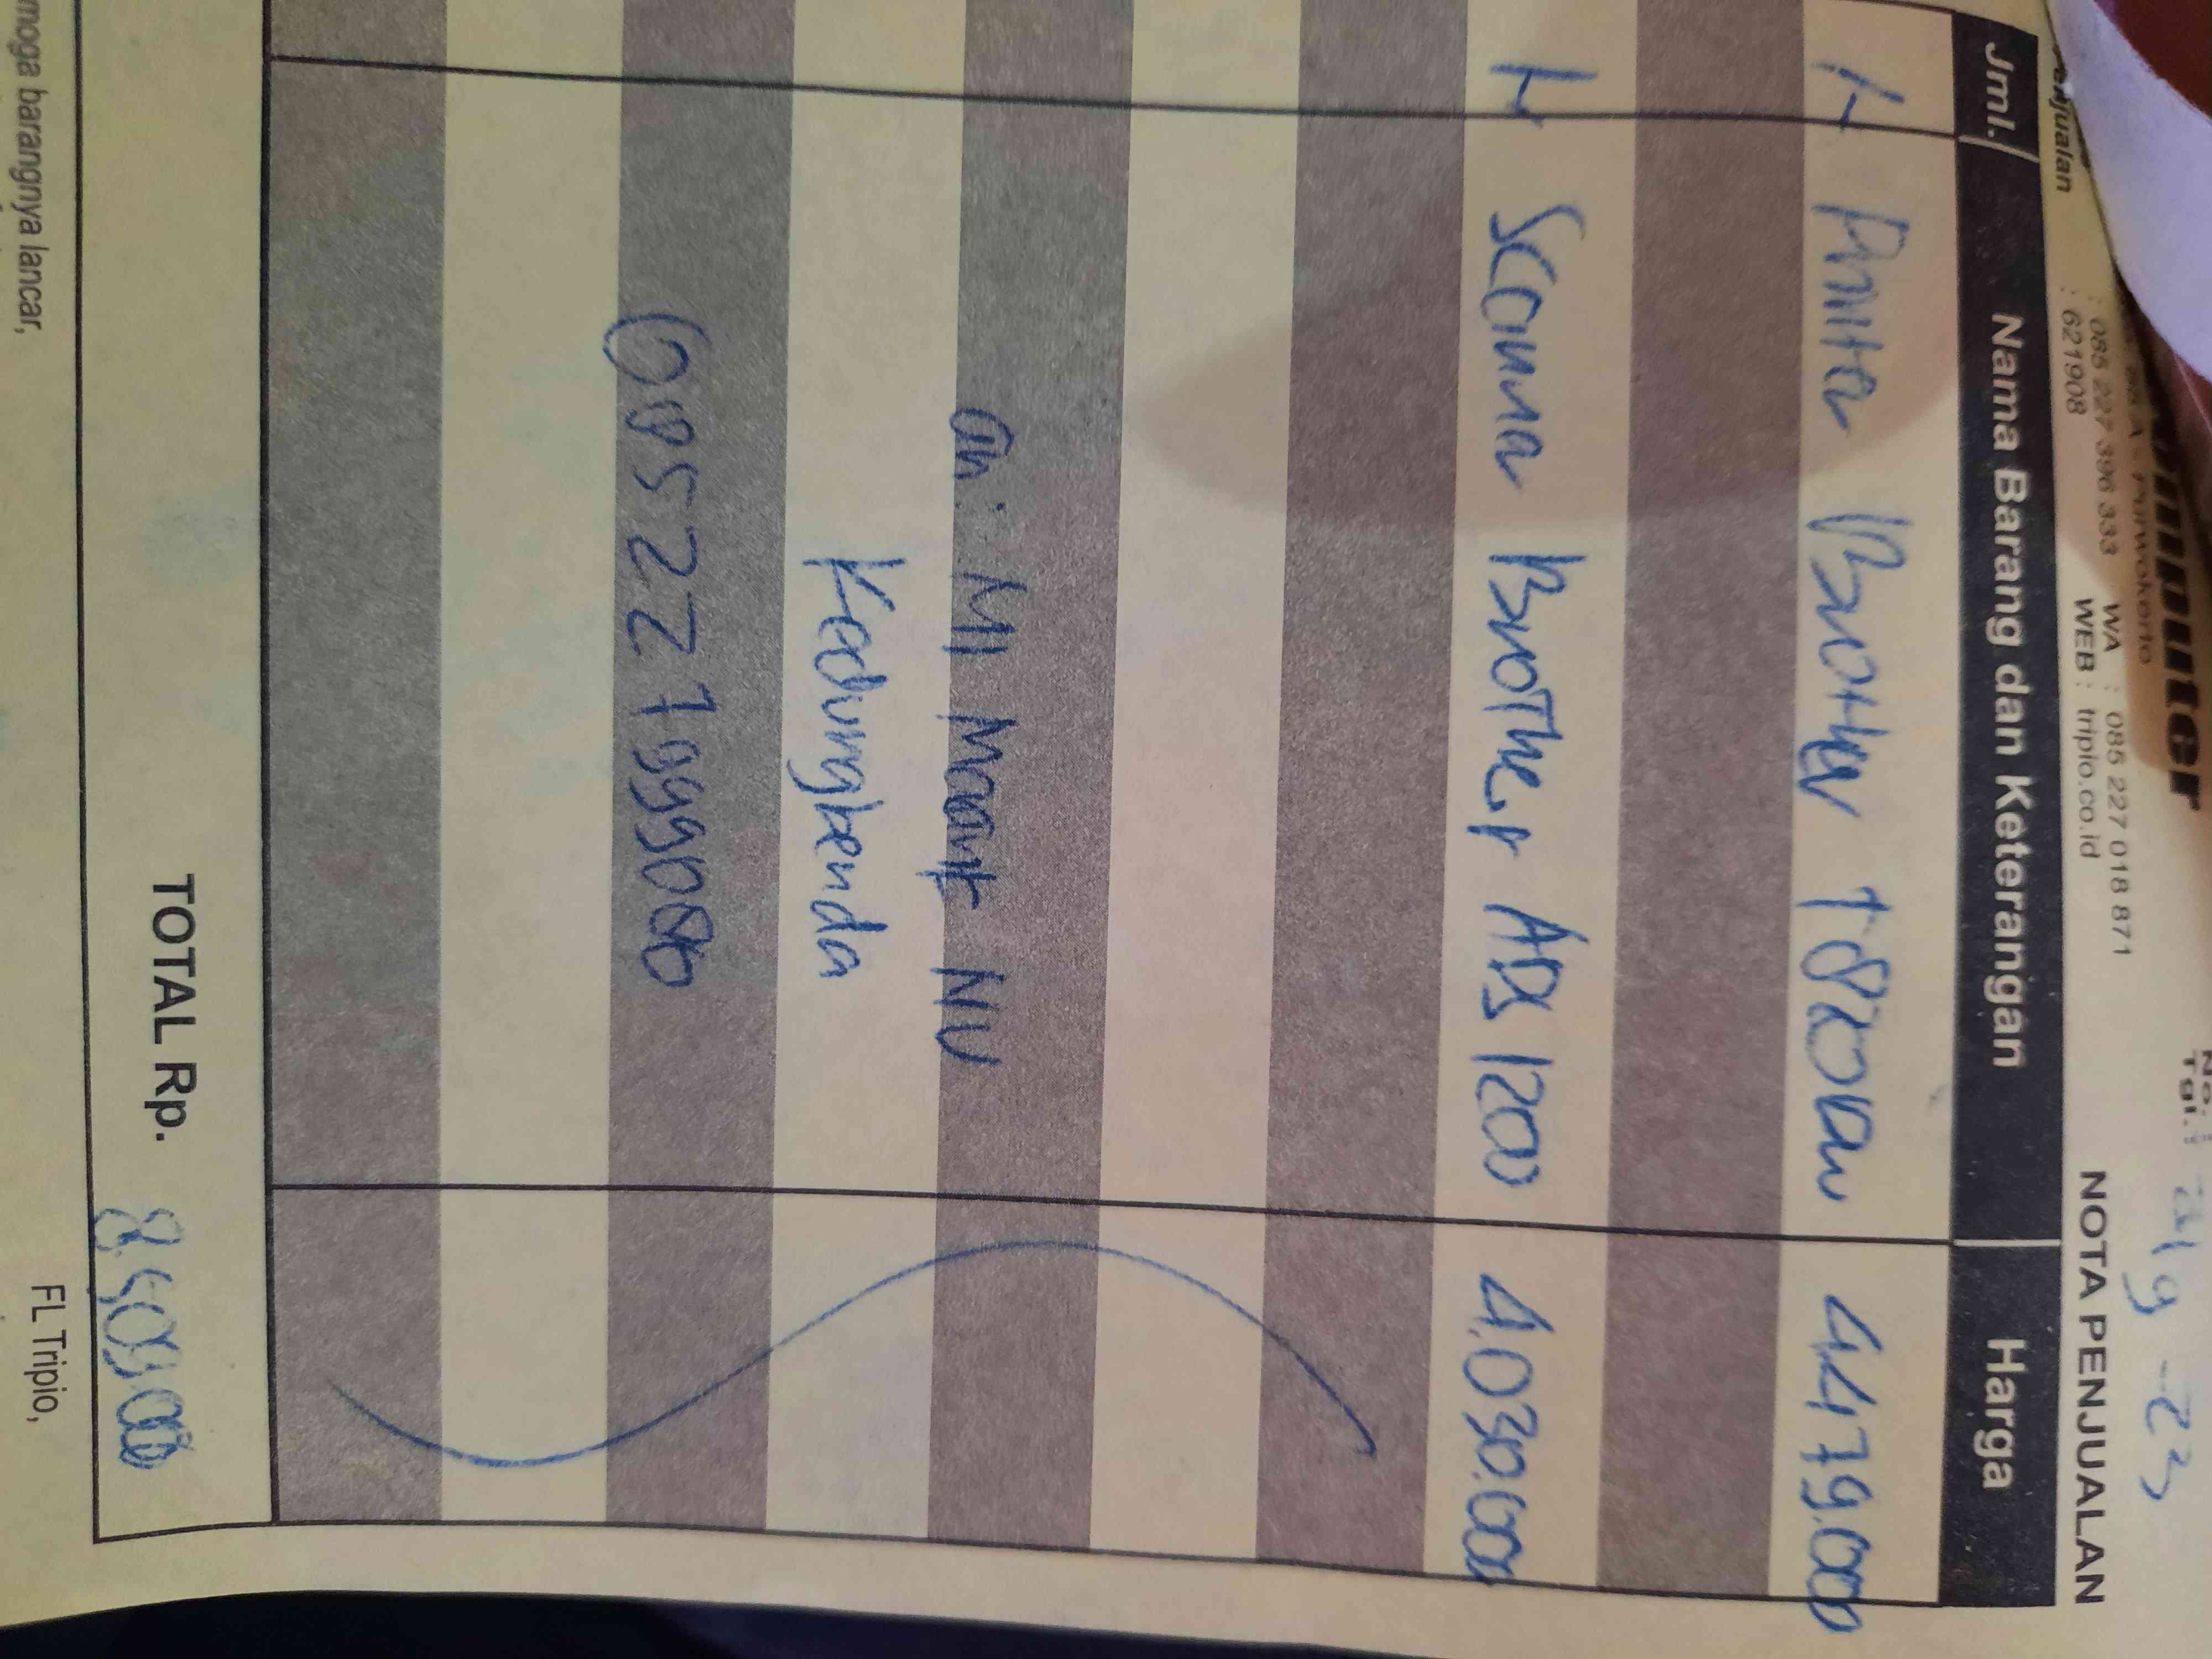 mputer
Purwokerto
: 085 227 396 333 WA : 085 227 018 871
: 621908 WEB : tripio.co.id
NOTA PENJUALAN
Jml. Nama Barang dan Keterangan Harga
1 Printer Brother T820DW 4.479.000
1 Scanner Brother ADS 1200 4.030.000
an: MI Maarif NU
Kedungbenda
TOTAL Rp. 8.509.000
moga barangnya lancar,
FL Tripio,